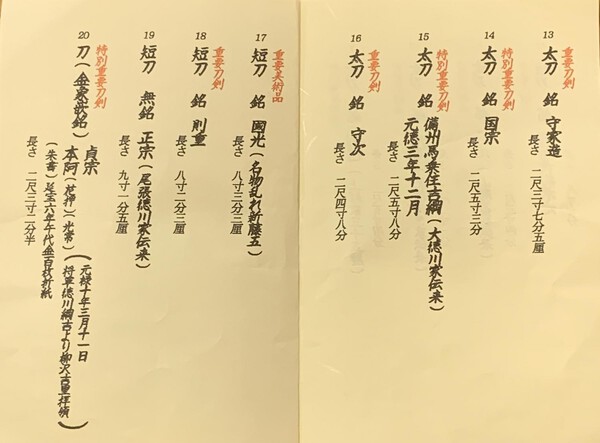 13
重要刀剣
太刀 銘 守家造
長さ 二尺三寸七分五厘
14
特別重要刀剣
太刀 銘 国宗
長さ 二尺五寸三分
15
特別重要刀剣
太刀 銘 備州馬乗住吉綱(大徳川家伝来)
元徳三年十二月
長さ 二尺五寸八分
16
太刀 銘 守次
長さ 二尺四寸八分
17
重要美術品
短刀 銘 國光(名物乱れ新藤五)
長さ 八寸三分三厘
18
重要刀剣
短刀 銘 則重
長さ 八寸二分三厘
19
短刀 無銘 正宗(尾張徳川家伝来)
長さ 九寸一分五厘
20
特別重要刀剣
刀(金象嵌銘) 貞宗
本阿(花押)(光常)(元禄十年三月十一日
将軍徳川綱吉より柳沢吉里拝領)
(朱書)延宝六年千代金百枚折紙
長さ 二尺三寸二分半